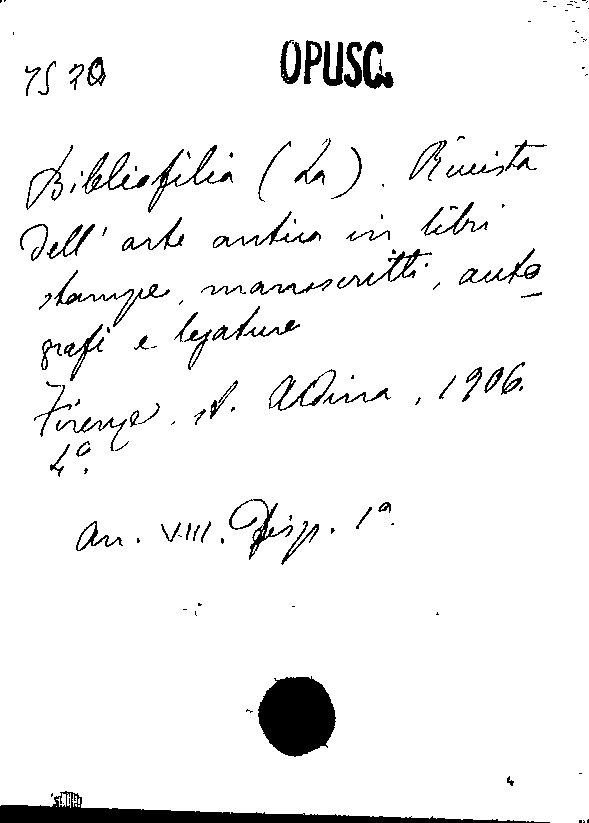 7570 OPUSC.
Bibliofilia (La). Rivista
dell'arte antica in libri
stampe, manoscritti, auto
grafi e legature
Firenze. A. Aldina, 1906.
4º.
an. VIII. Disp. 1ª.